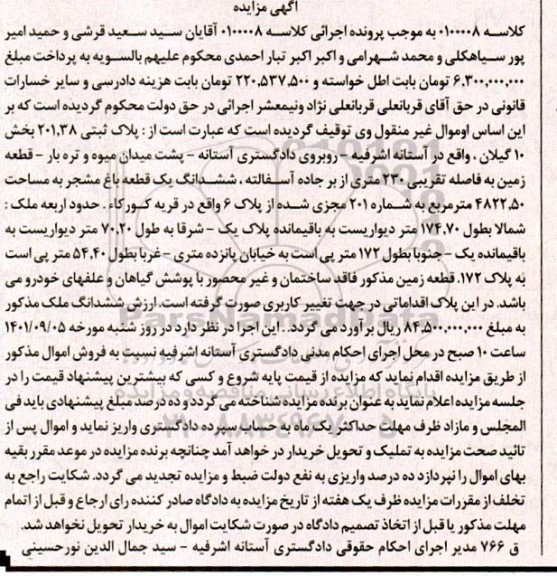 آگهی مزایده
کلاسه ۰۱۰۰۰۰۸ به موجب پرونده اجرائی کلاسه ۰۱۰۰۰۰۸ آقایان سید سعید قرشی و حمید امیر
پور سیاهکلی و محمد شهرامی و اکبر اکبر تبار احمدی محکوم علیهم بالسویه به پرداخت مبلغ
۶.۳۰۰,۰۰۰,۰۰۰ تومان بابت اطل خواسته و ۲۲۰,۵۳۷,۵۰۰ تومان بابت هزینه دادرسی و سایر خسارات
قانونی در حق آقای قربانعلی قربانعلی نژاد ونیمعشر اجرائی در حق دولت محکوم گردیده است که بر
این اساس اوموال غیر منقول وی توقیف گردیده است که عبارت است از : پلاک ثبتی ۲۰۱,۳۸ بخش
۱۰ گیلان ، واقع در آستانه اشرفیه - روبروی دادگستری آستانه - پشت میدان میوه و تره بار - قطعه
زمین به فاصله تقریبی ۲۳۰ متری از بر جاده آسفالته ، ششدانگ یک قطعه باغ مشجر به مساحت
۴۸۲۲,۵۰ مترمربع به شماره ۲۰۱ مجزی شده از پلاک ۶ واقع در قریه کورکاء . حدود اربعه ملک :
شمالا بطول ۱۷۴,۷۰ متر دیواریست به باقیمانده پلاک یک - شرقا به طول ۷۰,۲۰ متر دیواریست به
باقیمانده یک - جنوبا بطول ۱۷۲ متر پی است به خیابان پانزده متری - غربا بطول ۵۴,۴۰ متر پی است
به پلاک ۱۷۲. قطعه زمین مذکور فاقد ساختمان و غیر محصور با پوشش گیاهان و علفهای خودرو می
باشد. در این پلاک اقداماتی در جهت تغییر کاربری صورت گرفته است. ارزش ششدانگ ملک مذکور
به مبلغ ۸۴,۵۰۰,۰۰۰,۰۰۰ ریال بر آورد می گردد.. این اجرا در نظر دارد در روز شنبه مورخه ۱۴۰۱/۰۹/۰۵
ساعت ۱۰ صبح در محل اجرای احکام مدنی دادگستری آستانه اشرفیه نسبت به فروش اموال مذکور
از طریق مزایده اقدام نماید که مزایده از قیمت پایه شروع و کسی که بیشترین پیشنهاد قیمت را در
جلسه مزایده اعلام نماید به عنوان برنده مزایده شناخته می گردد و ده درصد مبلغ پیشنهادی باید فی
المجلس و مازاد ظرف مهلت حداکثر یک ماه به حساب سپرده دادگستری واریز نماید و اموال پس از
تائید صحت مزایده به تملیک و تحویل خریدار در خواهد آمد چنانچه برنده مزایده در موعد مقرر بقیه
بهای اموال را نپردازد ده درصد واریزی به نفع دولت ضبط و مزایده تجدید می گردد. شکایت راجع به
تخلف از مقررات مزایده ظرف یک هفته از تاریخ مزایده به دادگاه صادر کننده رای ارجاع و قبل از اتمام
مهلت مذکور یا قبل از اتخاذ تصمیم دادگاه در صورت شکایت اموال به خریدار تحویل نخواهد شد.
ق ۷۶۶ مدیر اجرای احکام حقوقی دادگستری آستانه اشرفیه - سید جمال الدین نورحسینی